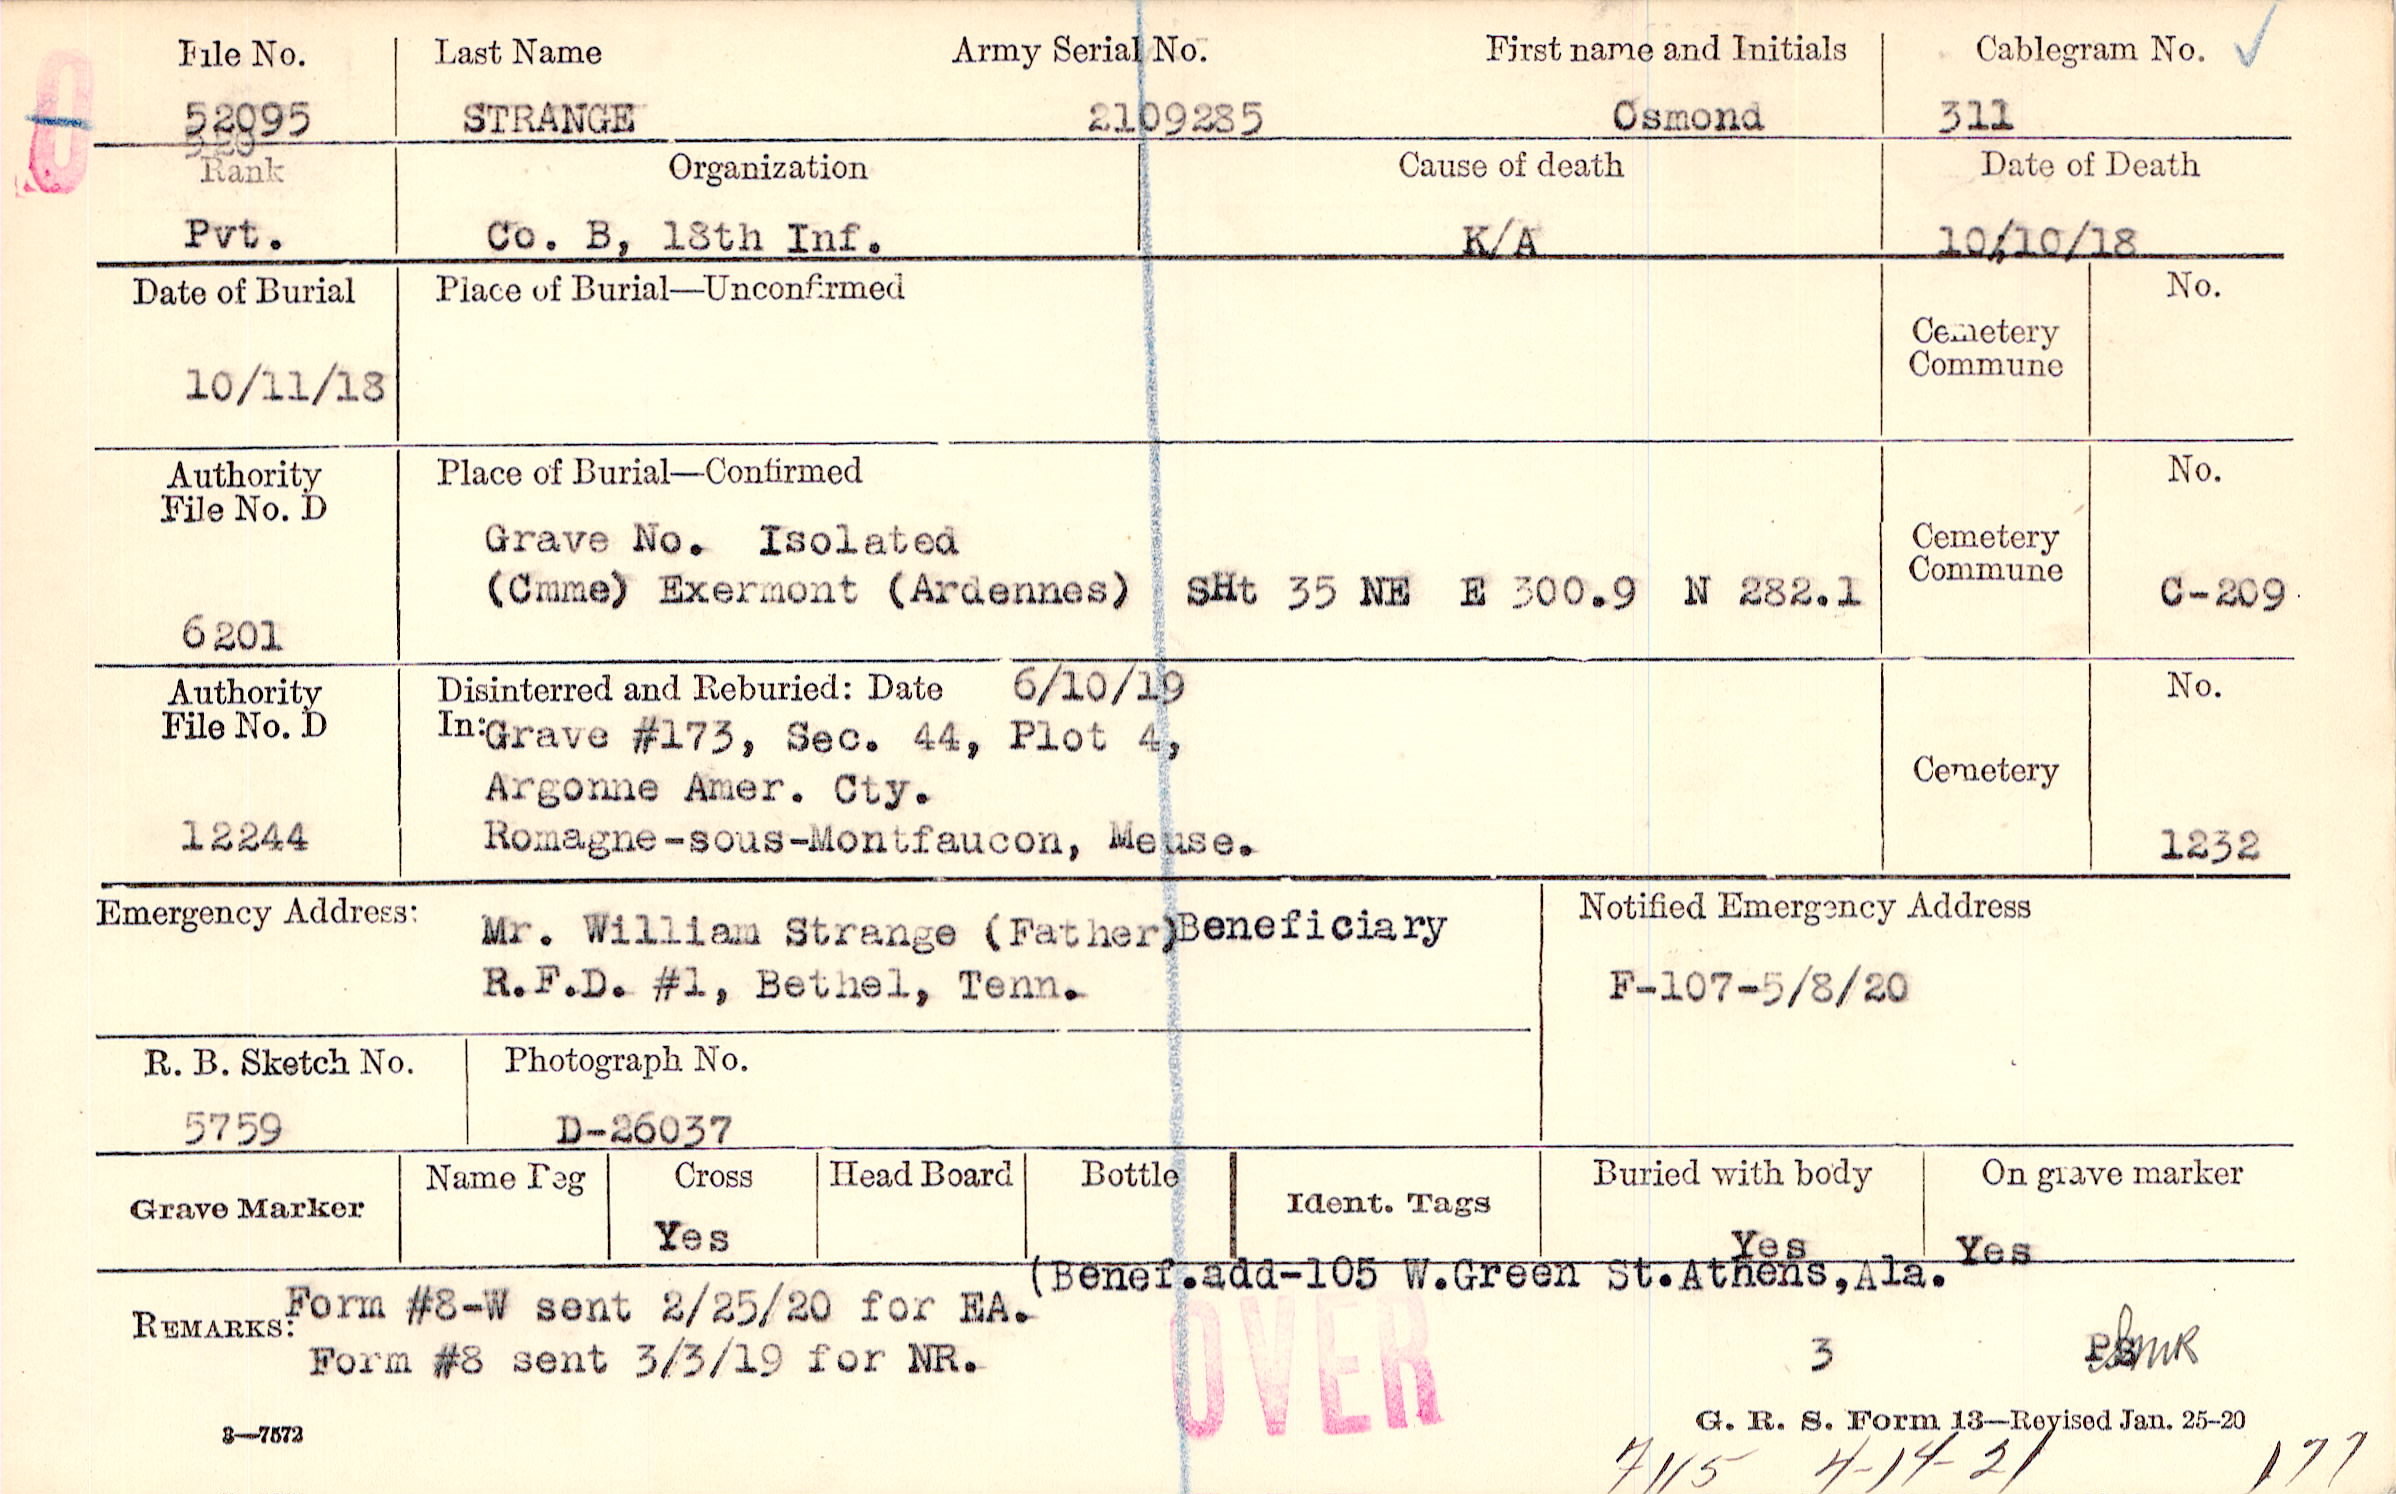 File No. Last Name Army Serial No. First name and Initials Cablegram No. ✓
52095 STRANGE 2109285 Osmond 311
Rank Organization Cause of death Date of Death
Pvt. Co. B, 18th Inf. K/A 10/10/18
Date of Burial Place of Burial—Unconfirmed No.
Cemetery
Commune
10/11/18
Authority Place of Burial—Confirmed No.
File No. D
Grave No. Isolated Cemetery
(Cmme) Exermont (Ardennes) SHt 35 NE E 300.9 N 282.1 Commune C-209
6201
Authority Disinterred and Reburied: Date 6/10/19 No.
File No. D In: Grave #173, Sec. 44, Plot 4,
Argonne Amer. Cty. Cemetery
12244 Romagne-sous-Montfaucon, Meuse. 1232
Emergency Address: Mr. William Strange (Father) Beneficiary Notified Emergency Address
R.F.D. #1, Bethel, Tenn. F-107-5/8/20
R. B. Sketch No. Photograph No.
5759 D-26037
Grave Marker Name Peg Cross Head Board Bottle Ident. Tags Buried with body On grave marker
Yes Yes Yes
(Benef.add-105 W.Green St.Athens,Ala.
REMARKS: Form #8-W sent 2/25/20 for EA.
Form #8 sent 3/3/19 for NR. 3
OVER
3—7572 G. R. S. Form 13—Revised Jan. 25-20
7115 4-14-21 177